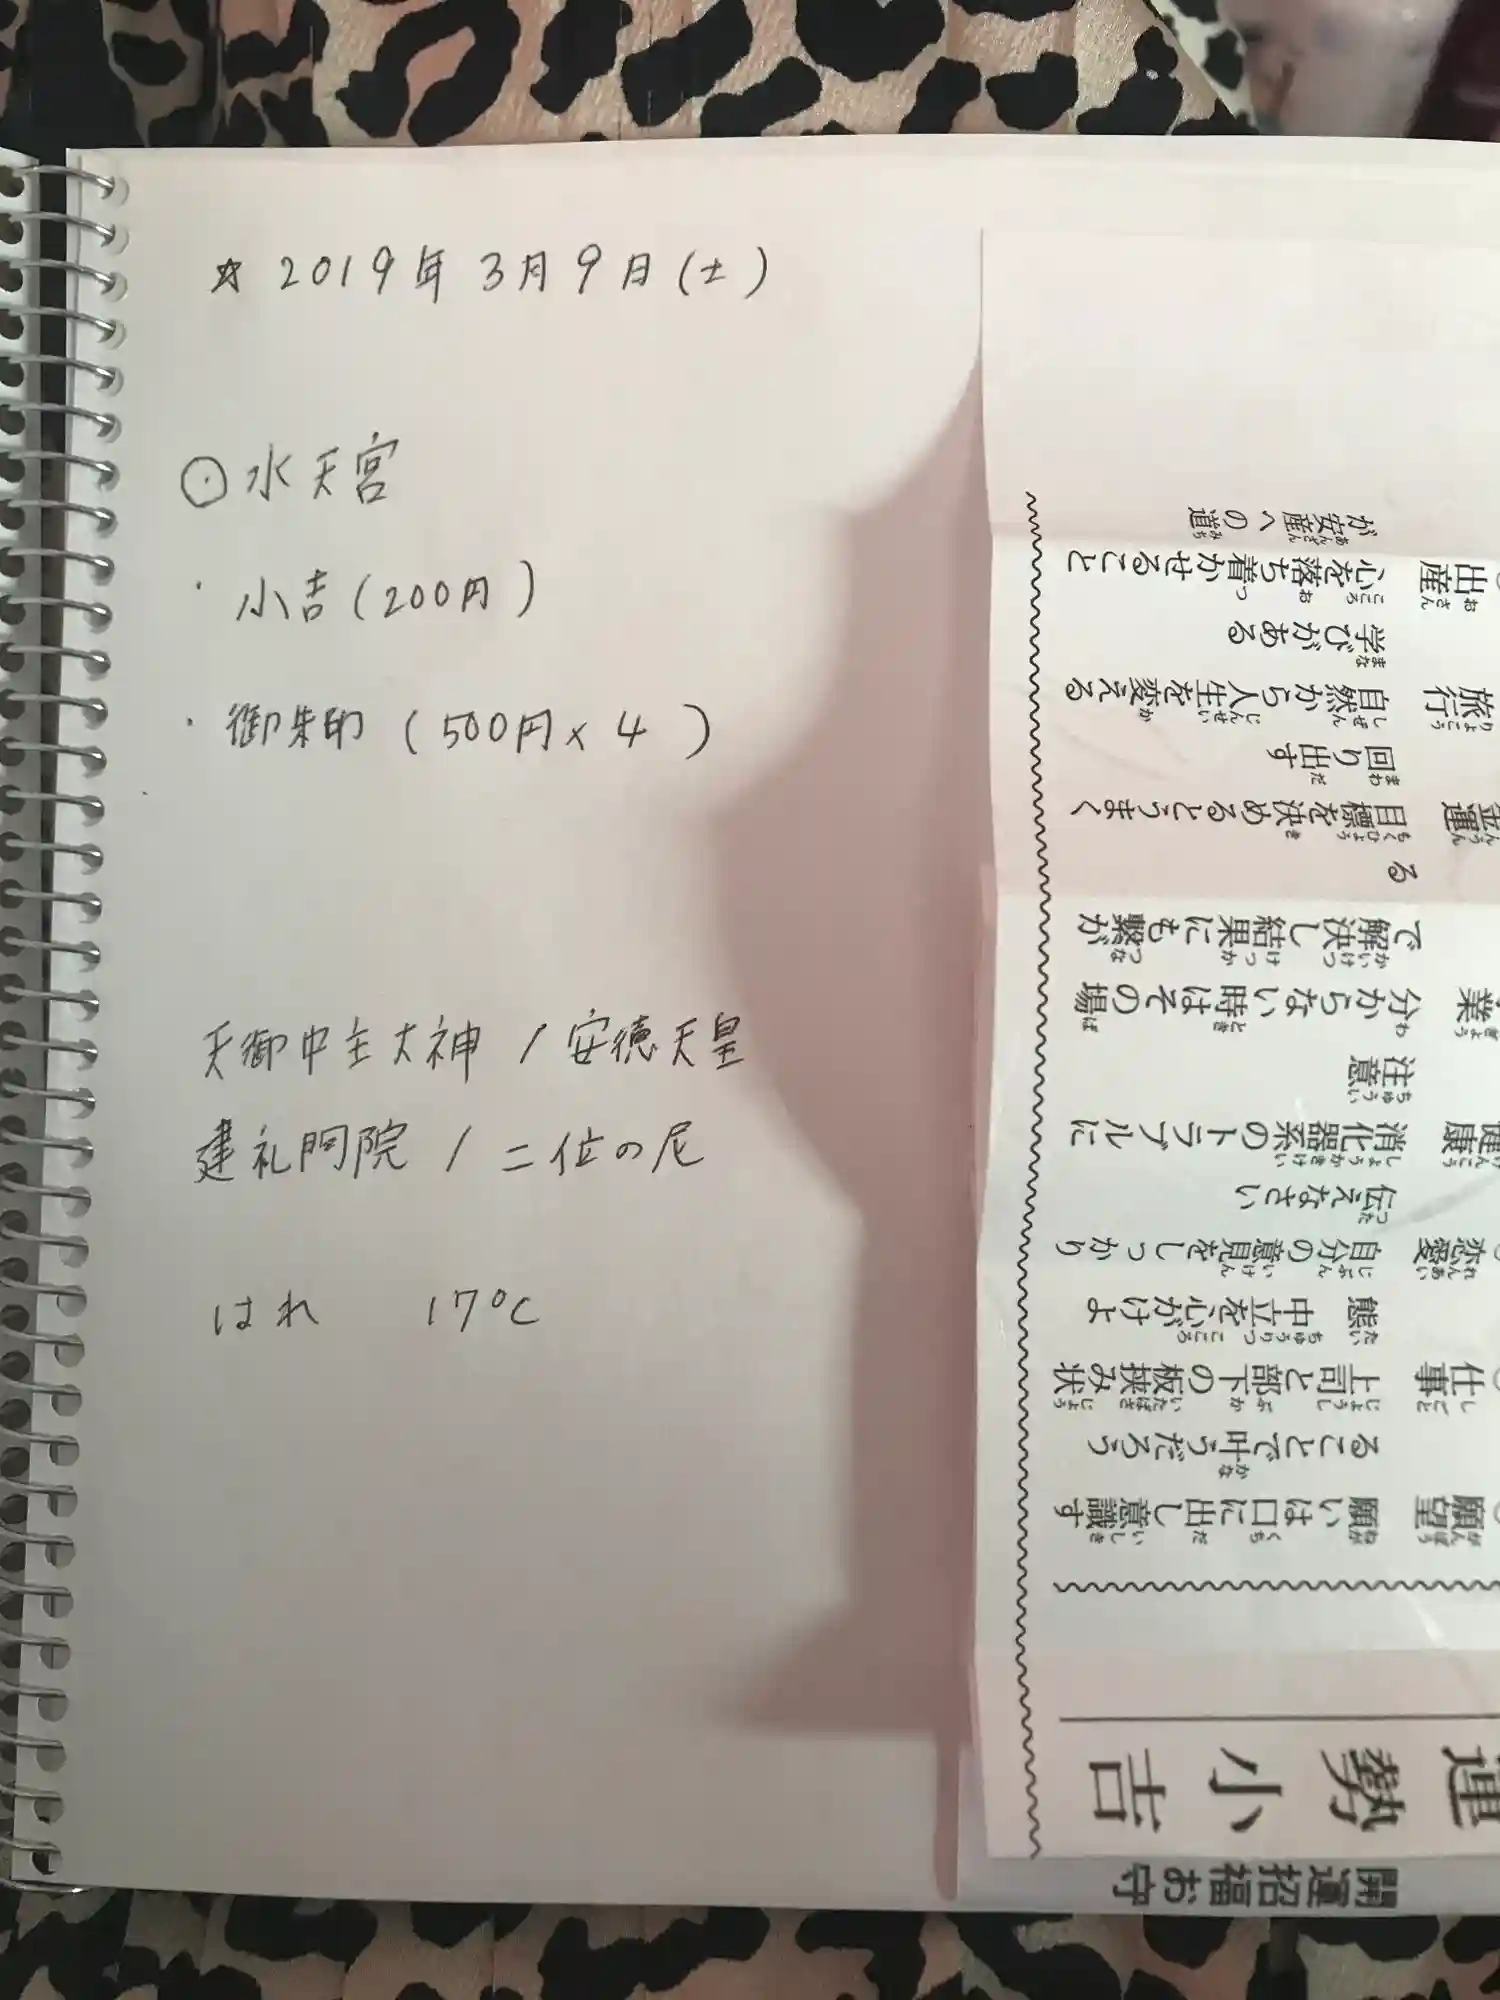 ☆ 2019年 3月 9日 (土)
⊙ 水天宮
・ 小吉 (200円)
・ 御朱印 (500円 × 4 )
天御中主大神 / 安徳天皇
建礼門院 / 二位の尼
はれ 17℃
開運招福お守
運勢 小吉
願望 願いは口に出し意識す
ることで叶うだろう
仕事 上司と部下の板挟み状
態 中立を心がけよ
恋愛 自分の意見をしっかり
伝えなさい
健康 消化器系のトラブルに
注意
業 分からない時はその場
で解決し結果にも繋が
る
金運 目標を決めるとうまく
回り出す
旅行 自然から人生を変える
学びがある
出産 心を落ち着かせること
が安産への道